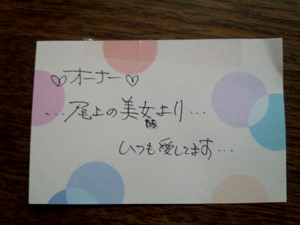 ♡オーナー♡
…尾上の美女より…
いつも愛してます…